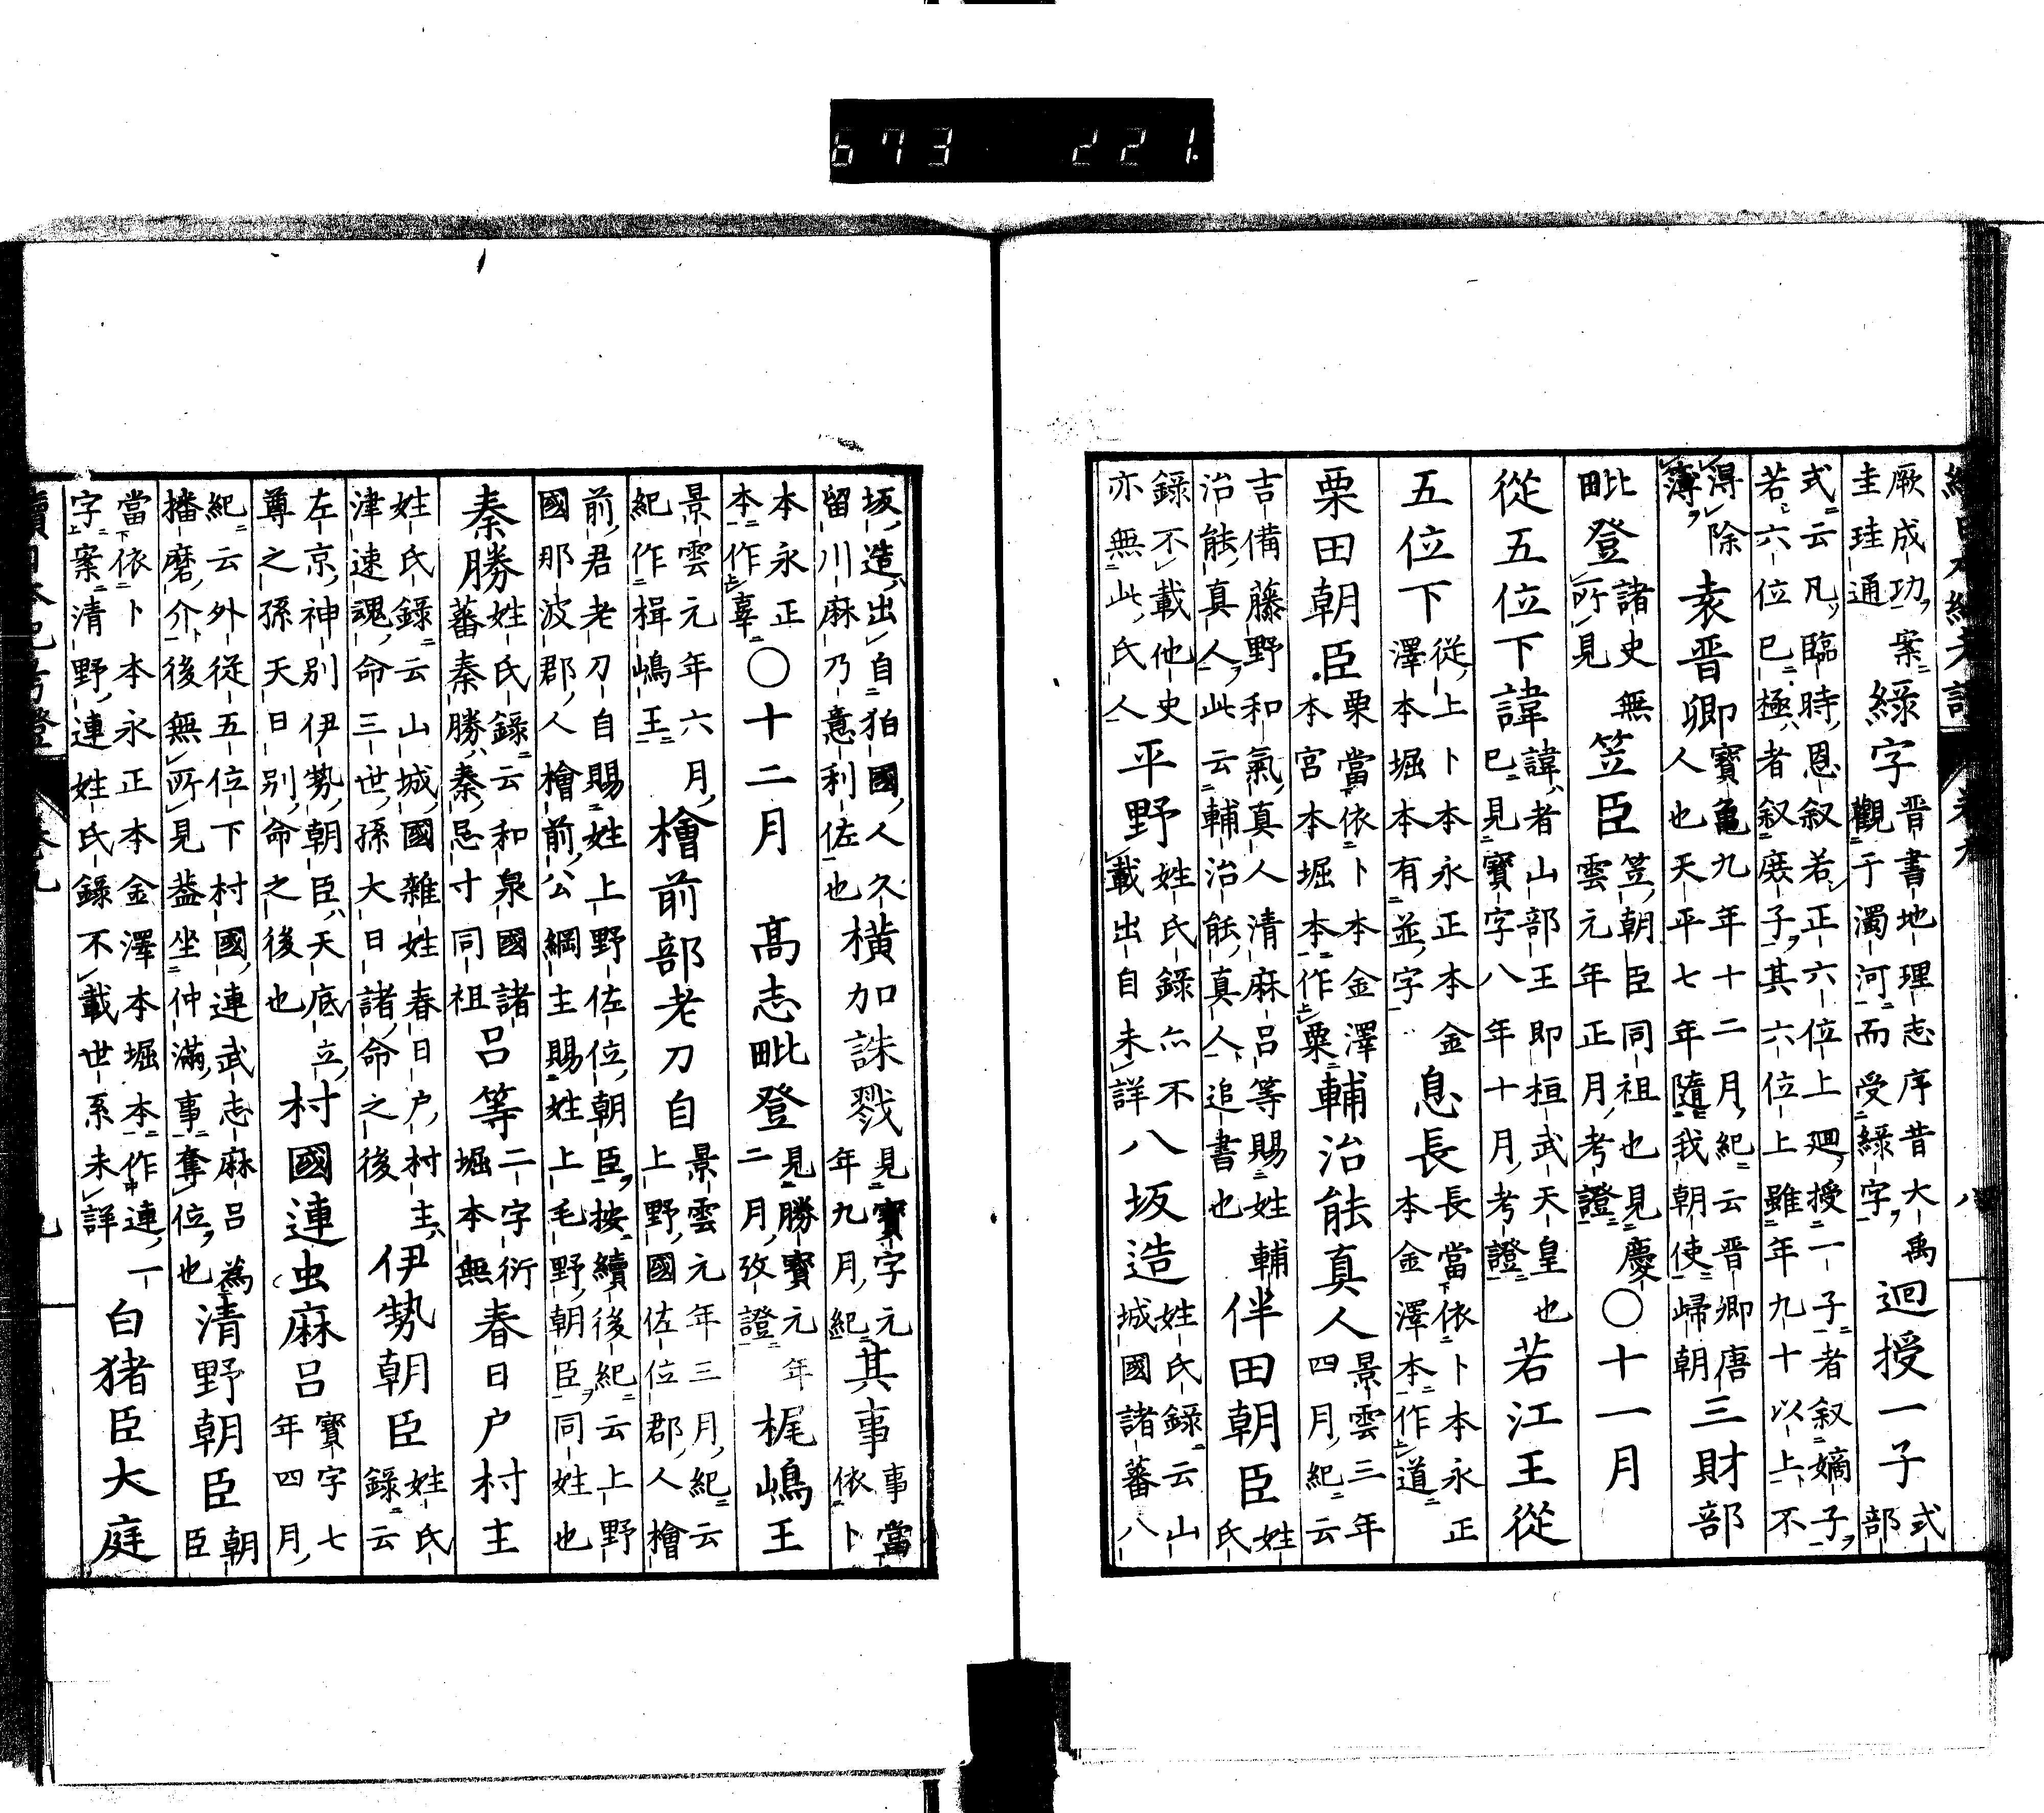 673 221.
厥成功案圭珪通綠字晋書地理志序昔大禹觀于濁河而受綠字迴授一子式部
式云凡臨時恩叙若正六位上廻授一子者叙嫡子若六位已極者叙庶子其六位上雖年九十以上不
得除薄袁晋卿寶龜九年十二月紀云晋卿唐人也天平七年隨我朝使歸朝三財部
毗登諸史無所見笠臣笠朝臣同祖也見慶雲元年正月考證○十一月
從五位下諱諱者山部王即桓武天皇也巳見寶字八年十月考證若江王從
五位下從上卜本永正本金澤本堀本有並字息長長當依卜本永正本金澤本作道
栗田朝臣栗當依卜本金澤本宮本堀本作粟輔治能真人景雲三年四月紀云
吉備藤野和氣真人清麻呂等賜姓輔治能真人此云輔治能真人追書也伴田朝臣姓氏
錄不載他史亦無此氏人平野姓氏錄亦不載出自未詳八坂造姓氏錄云山城國諸蕃八
坂造出自狛國人久留川麻乃意利佐也横加誅戮見寶字元年九月紀其事事當依卜
本永正本作辜○十二月高志毗登見勝寶元年二月攷證梶嶋王
景雲元年六月紀作楫嶋王檜前部老刀自景雲元年三月紀云上野國佐位郡人檜
前君老刀自賜姓上野佐位朝臣按續後紀云上野國那波郡人檜前公綱主賜姓上毛野朝臣同姓也
秦勝姓氏錄云和泉國諸蕃秦勝秦忌寸同祖呂等二字衍堀本無春日户村主
姓氏錄云山城國雜姓春日户村主津速魂命三世孫大日諸命之後伊勢朝臣姓氏錄云
左京神别伊勢朝臣天底立尊之孫天日别命之後也村國連虫麻呂寶字七年四月
紀云外從五位下村國連武志麻呂為播磨介後無所見葢坐仲滿事奪位也清野朝臣朝臣
當依卜本永正本金澤本堀本作連一字案清野連姓氏錄不載世系未詳白猪臣大庭